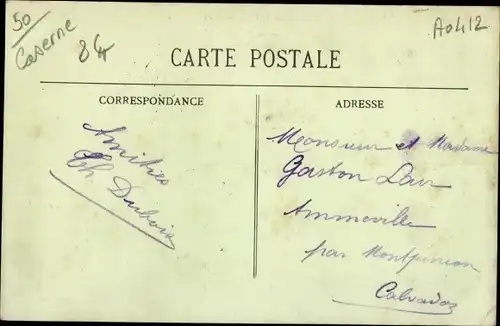 50
Caserne
8€
A0412
CARTE POSTALE
CORRESPONDANCE
ADRESSE
Amitiés
Ch. Dubois
Monsieur et Madame
Gaston
Ammeville
par Montpinçon
Calvados